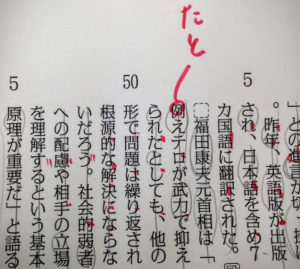 」との
5
。昨年、英語版が出版
され、日本語を含め7
カ国語に翻訳された。
福田康夫元首相は「
たと
例えテロが武力で抑え
られたとしても、他の
50
形で問題は繰り返され
根源的な解決にならな
いだろう。社会的弱者
への配慮や相手の立場
を理解するという基本
5
原理が重要だ」と語る